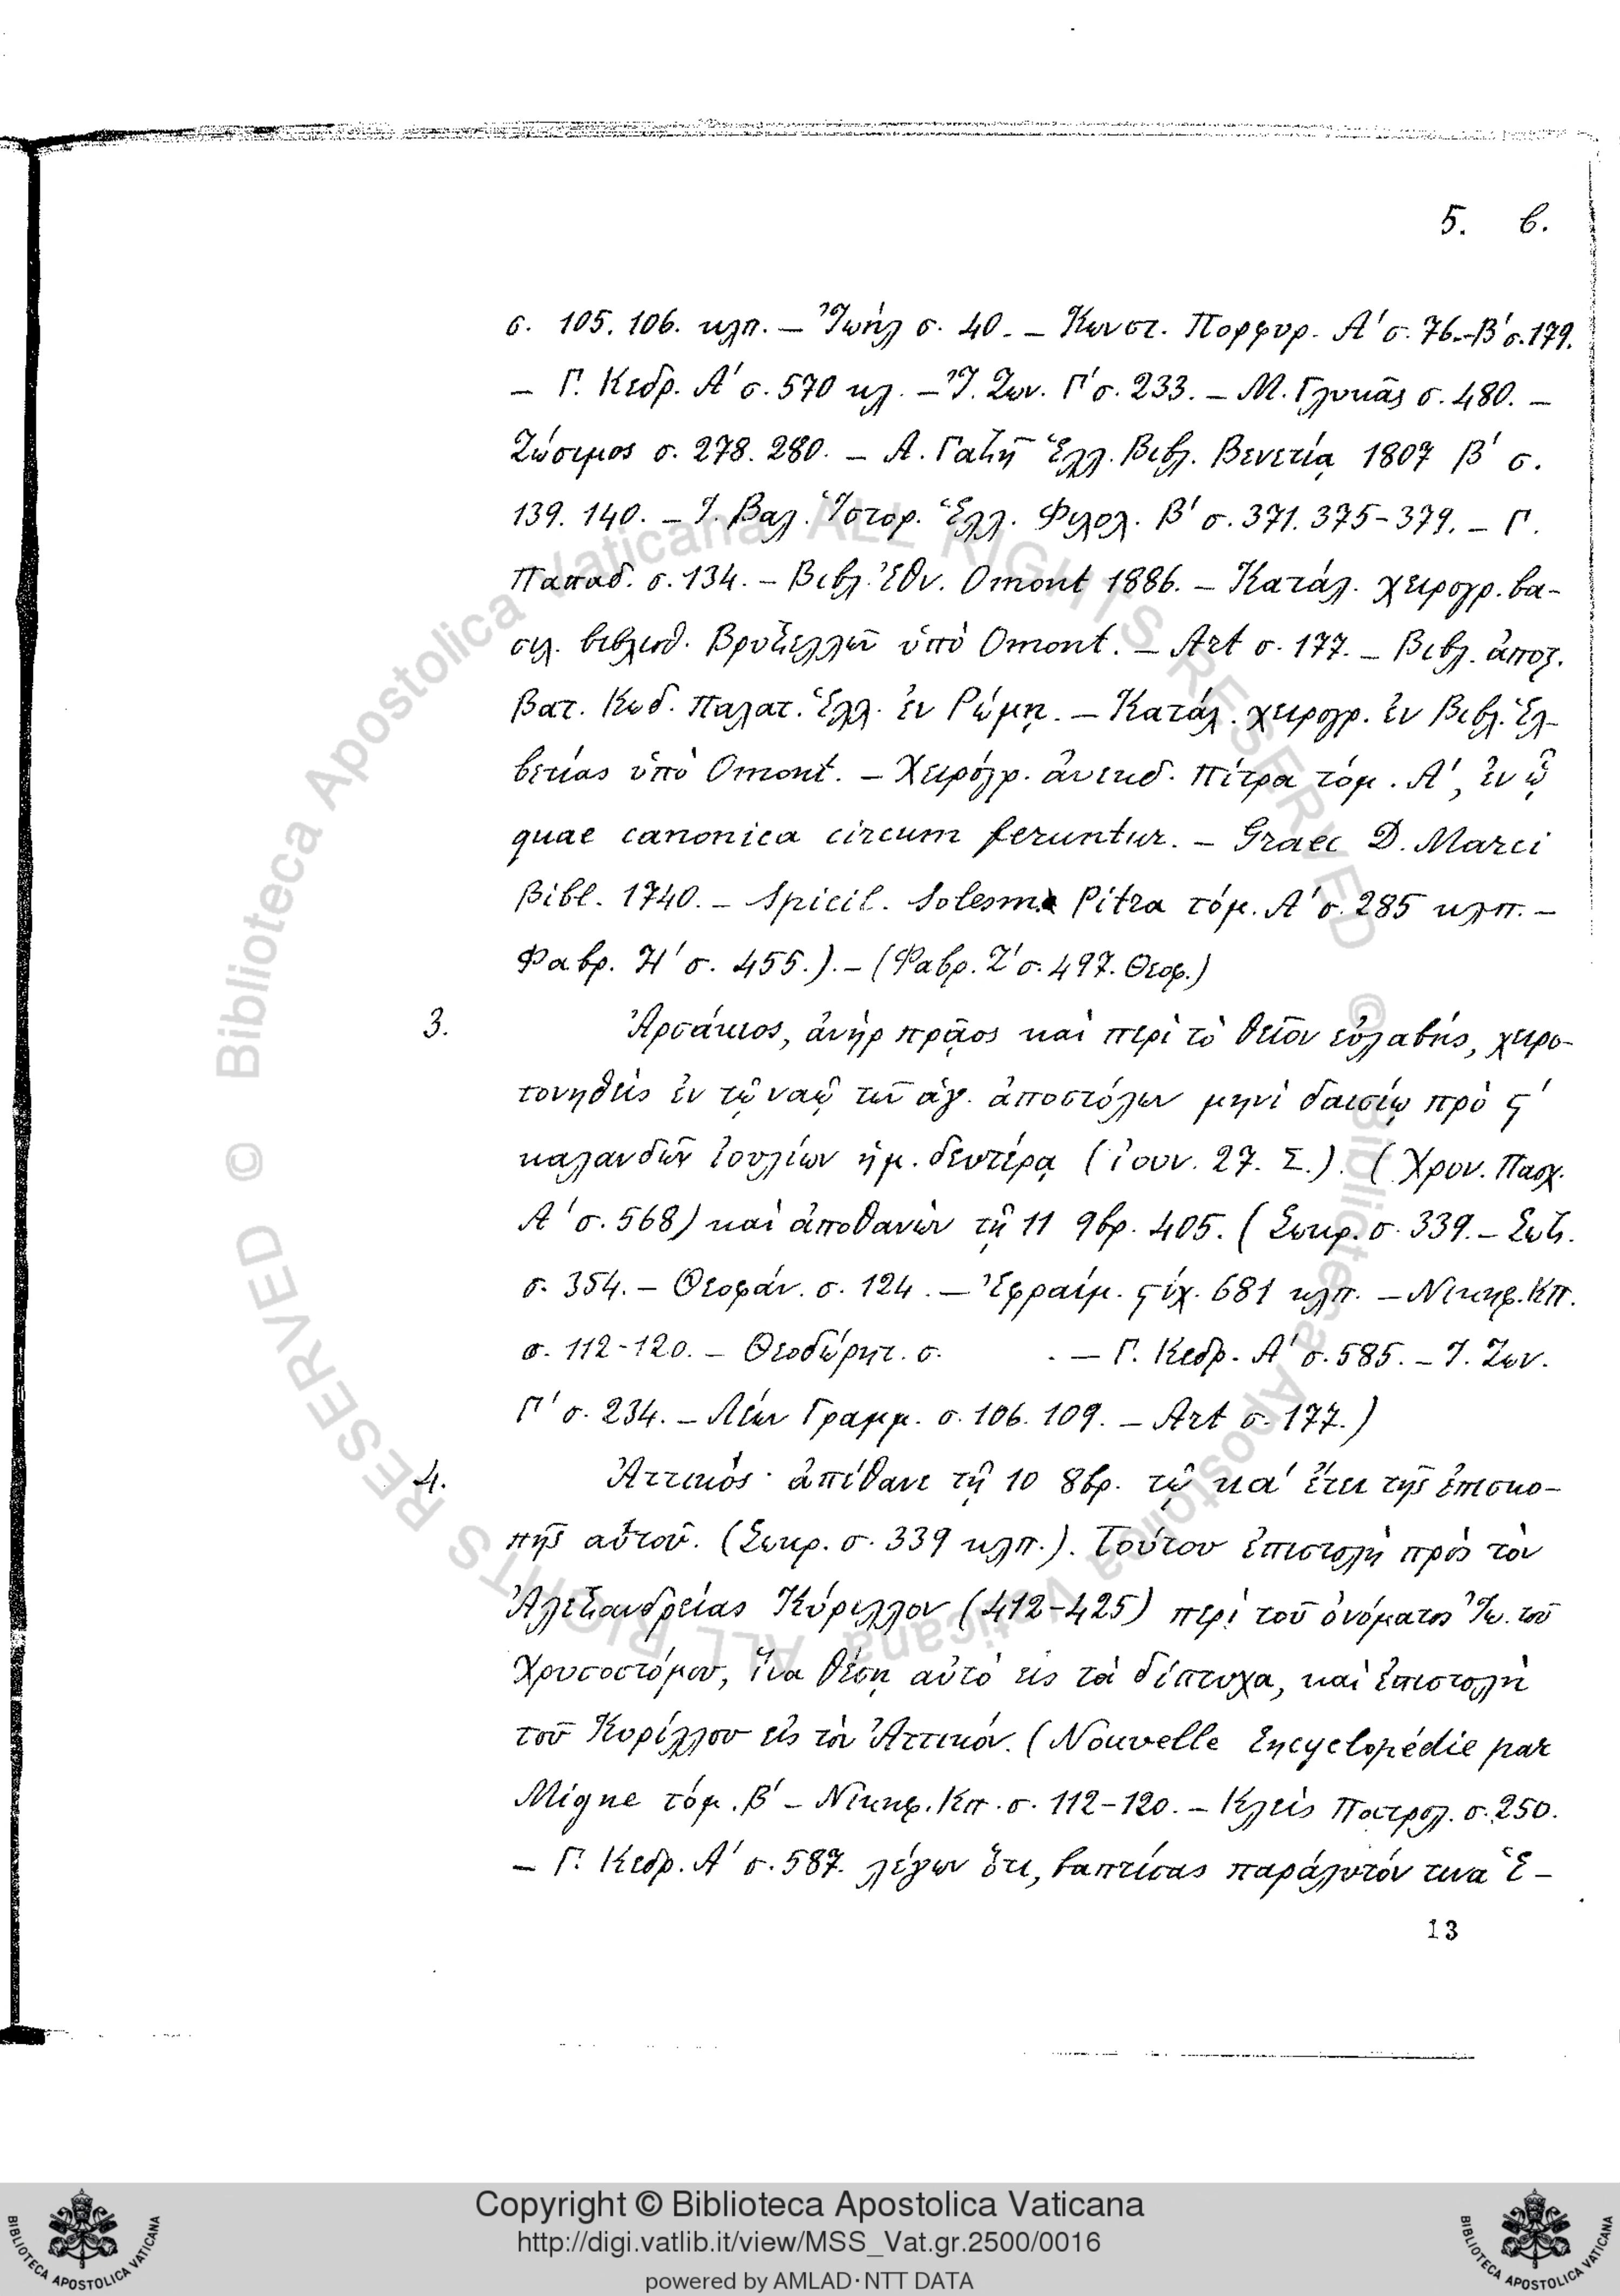 5. β.
σ. 105. 106. κλπ. — Ἰωήλ σ. 40. — Κωνστ. Πορφυρ. Α' σ. 76.—Β' σ. 179.
— Γ. Κεδρ. Α' σ. 570 κλ. — Ἰ. Ζων. Γ' σ. 233. — Μ. Γλυκᾶς σ. 480. —
Ζώσιμος σ. 278. 280. — Α. Γαζῆ Ἑλλ. Βιβλ. Βενετίᾳ 1807 Β' σ.
139. 140. — Ἰ. Βαλ. Ἱστορ. Ἑλλ. Φιλολ. Β' σ. 371. 375-379. — Γ.
Παπαδ. σ. 134. — Βιβλ. Ἐθν. Omont 1886. — Κατάλ. χειρογρ. βα-
σιλ. βιβλιοθ. Βρυξελλῶν ὑπὸ Omont. — Art σ. 177. — Βιβλ. ἀποστ.
Βατ. Κωδ. Παλατ. Ἑλλ. ἐν Ρώμῃ. — Κατάλ. χειρογρ. ἐν Βιβλ. Ἑλ-
βετίας ὑπὸ Omont. — Χειρόγρ. ἀνεκδ. Πίτρα τόμ. Α', ἐν ᾧ
quae canonica circum feruntur. — Graec D. Marci
Bibl. 1740. — Spicil. Solesm. Pitra τόμ. Α' σ. 285 κλπ. —
Φαβρ. Η' σ. 455.). — (Φαβρ. Ζ' σ. 497. Θεοφ.)
3. Ἀρσάκιος, ἀνὴρ πρᾷος καὶ περὶ τὸ θεῖον εὐλαβής, χειρο-
τονηθεὶς ἐν τῷ ναῷ τῶν ἁγ. ἀποστόλων μηνὶ δαισίῳ πρὸ ϛ'
καλανδῶν ἰουλίων ἡμ. δευτέρᾳ (ἰουν. 27. Σ.). (Χρον. Πασχ.
Α' σ. 568) καὶ ἀποθανὼν τῇ 11 9βρ. 405. (Σωκρ. σ. 339. — Σωζ.
σ. 354. — Θεοφάν. σ. 124. — Ἐφραίμ. ϛίχ. 681 κλπ. — Νικηφ. Κπ.
σ. 112-120. — Θεοδώρητ. σ. . — Γ. Κεδρ. Α' σ. 585. — Ἰ. Ζων.
Γ' σ. 234. — Λέων Γραμμ. σ. 106. 109. — Art σ. 177.)
4. Ἀττικός· ἀπέθανε τῇ 10 8βρ. τῷ κα' ἔτει τῆς ἐπισκο-
πῆς αὑτοῦ. (Σωκρ. σ. 339 κλπ.). Τούτου ἐπιστολὴ πρὸς τὸν
Ἀλεξανδρείας Κύριλλον (412-425) περὶ τοῦ ὀνόματος Ἰω. τοῦ
Χρυσοστόμου, ἵνα θέσῃ αὐτὸ εἰς τὰ δίπτυχα, καὶ ἐπιστολὴ
τοῦ Κυρίλλου εἰς τὸν Ἀττικόν. (Nouvelle Encyclopédie par
Migne τόμ. Β' — Νικηφ. Κπ. σ. 112-120. — Κλεὶς Πατρολ. σ. 250.
— Γ. Κεδρ. Α' σ. 587. λέγων ὅτι, βαπτίσας παράλυτόν τινα Ἑ-
13
Copyright © Biblioteca Apostolica Vaticana
http://digi.vatlib.it/view/MSS_Vat.gr.2500/0016
powered by AMLAD·NTT DATA